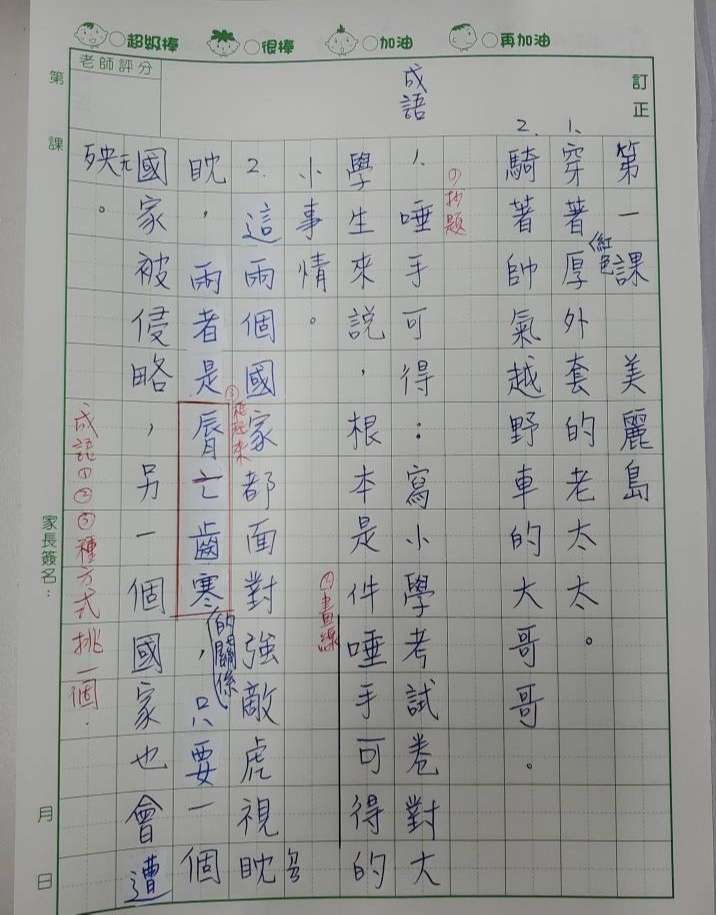 超級棒 很棒 加油 再加油
老師評分
訂正
第 課
家長簽名：
月 日
第一課 美麗島
1、穿著厚外套的老太太。
〈紅色
2、騎著帥氣越野車的大哥哥。
成語
①抄題
1、唾手可得：寫小學考試卷對大
學生來說，根本是件唾手可得的
②畫線
小事情。
2.這兩個國家都面對強敵虎視眈
眈，兩者是脣亡齒寒，只要一個
的關係
國家被侵略，另一個國家也會遭
殃。
成語①②③種方式挑一個．